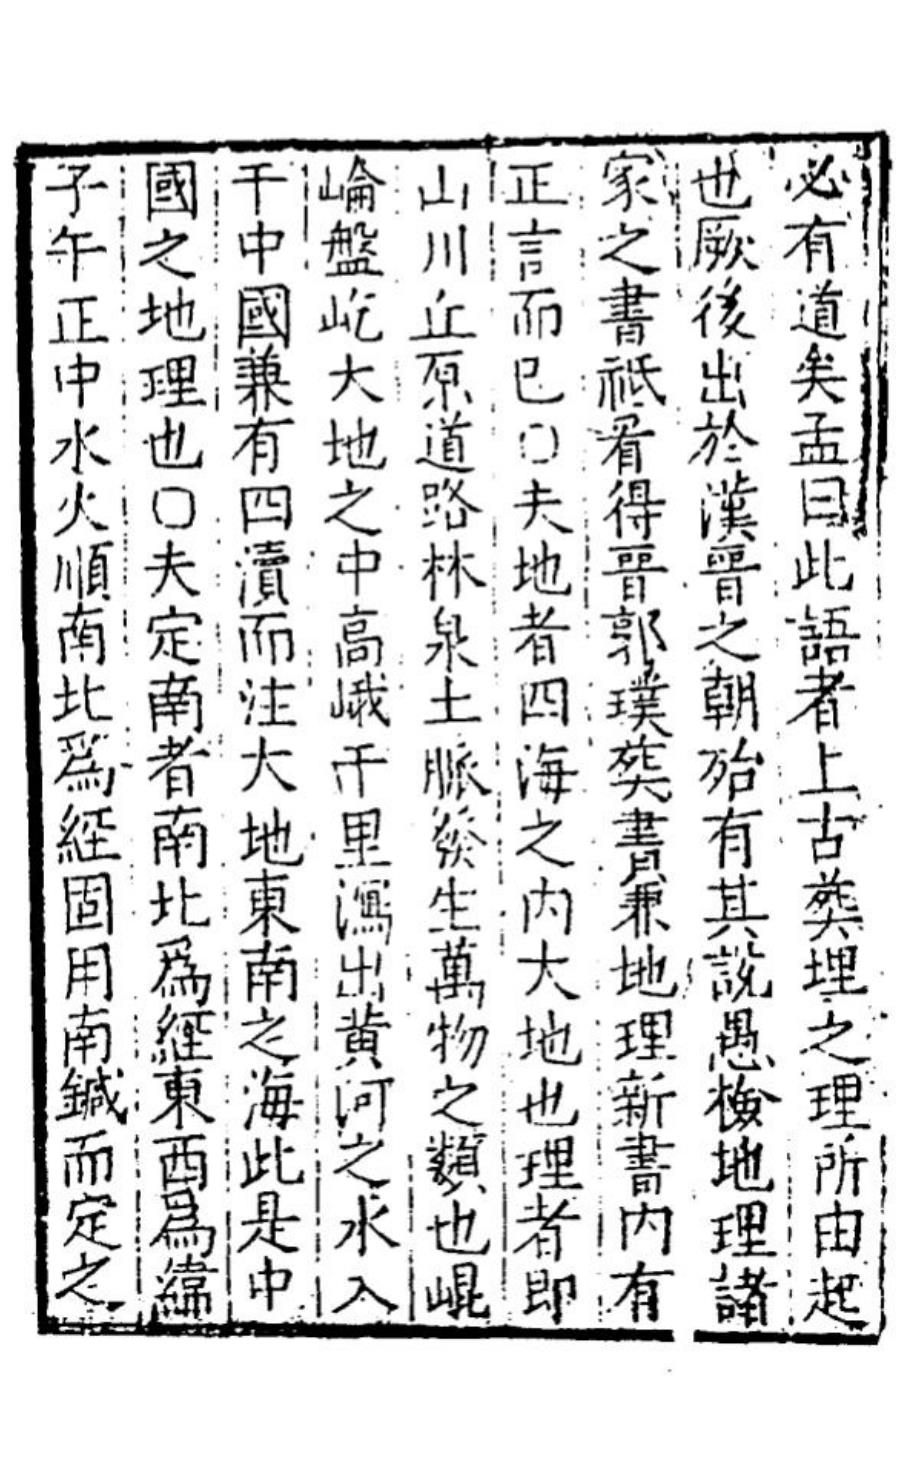 必有道矣孟曰此語者上古葬埋之理所由起
也厥後出於漢晉之朝殆有其說愚檢地理諸
家之書祗看得晉郭璞葬書兼地理新書内有
正言而已〇夫地者四海之内大地也理者即
山川丘原道路林泉土脈發生萬物之類也崐
崘盤屹大地之中高峨千里瀉出黄河之水入
于中國兼有四瀆而注大地東南之海此是中
國之地理也〇夫定南者南北爲經東西爲緯
子午正中水火順南北爲經固用南鍼而定之